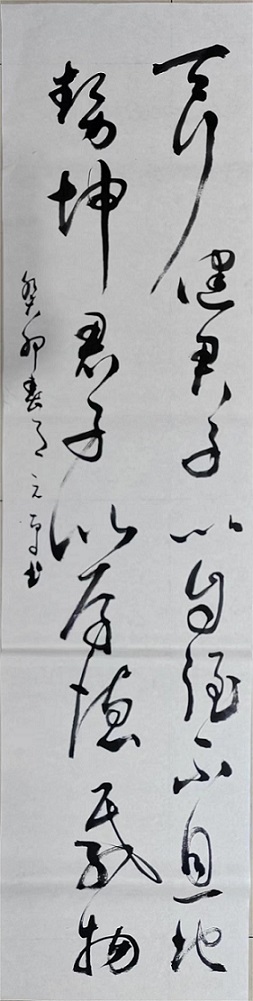 天行健君子以自强不息地
勢坤君子以厚德载物
癸卯春月元书